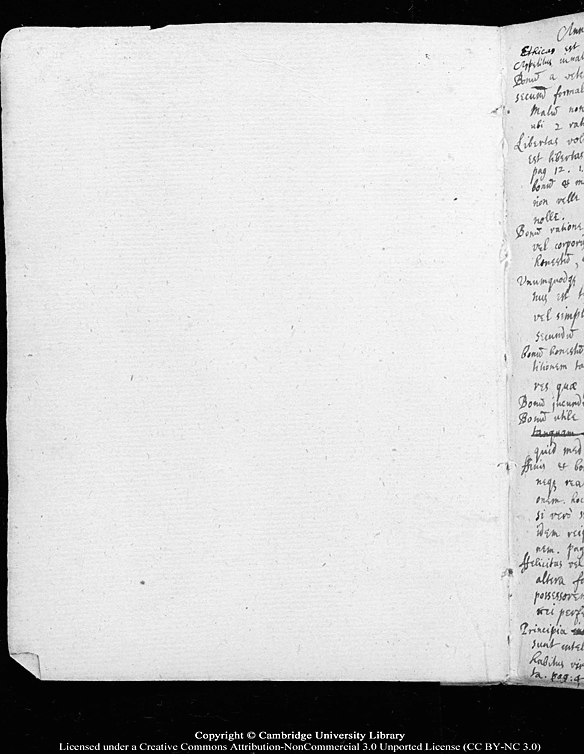 Ethicæ est
Appetitus
Bonū a
secund formal
Malū non
ubi 2 rat
Libertas vol
est libertas
pag 12.
bonū et m
non velle
nolle.
Bonū ratione
vel corpor
honestū,
Unumquodqꝫ
est
vel simpl
secundū
bonū honestū
res quæ
Bonū jucundū
Bonū utile
tanquam
quid med
ffinis et bo
neqꝫ rea
onem. hoc
si verò
idem reip
nem. pag
ffelicitas vel
altera f
possessorem
rei perf
Principia
sunt intel
habitus ver
ta. pag. 4
Copyright © Cambridge University Library
Licensed under a Creative Commons Attribution-NonCommercial 3.0 Unported License (CC BY-NC 3.0)